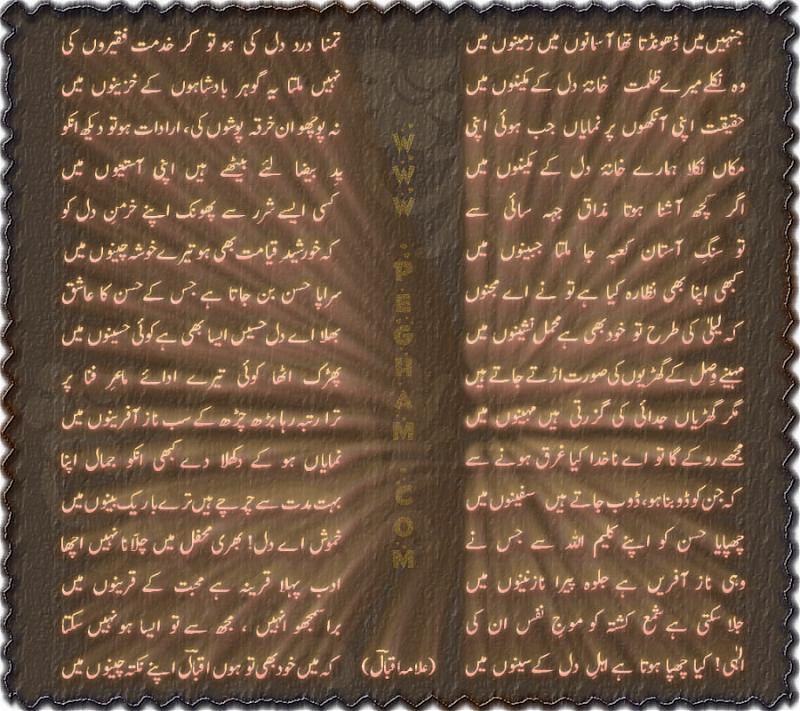 جنہیں میں ڈھونڈتا تھا آسمانوں میں زمینوں میں
وہ نکلے میرے ظلمت خانۂ دل کے مکینوں میں
حقیقت اپنی آنکھوں پر نمایاں جب ہوئی اپنی
مکاں نکلا ہمارے خانۂ دل کے مکینوں میں
اگر کچھ آشنا ہوتا مذاق جبہ سائی سے
تو سنگ آستان کعبہ جا ملتا جبینوں میں
کبھی اپنا بھی نظارہ کیا ہے تو نے اے مجنوں
کہ لیلیٰ کی طرح تو خود بھی ہے محمل نشینوں میں
مہینے وصل کے گھڑیوں کی صورت اڑتے جاتے ہیں
مگر گھڑیاں جدائی کی گزرتی ہیں مہینوں میں
مجھے روکے گا تو اے ناخدا کیا غرق ہونے سے
کہ جن کو ڈوبنا ہو، ڈوب جاتے ہیں سفینوں میں
چھپایا حسن کو اپنے کلیم اللہ سے جس نے
وہی ناز آفریں ہے جلوہ پیرا نازنینوں میں
جلا سکتی ہے شمع کشتہ کو موج نفس ان کی
الٰہی! کیا چھپا ہوتا ہے اہل دل کے سینوں میں
تمنا درد دل کی ہو تو کر خدمت فقیروں کی
نہیں ملتا یہ گوہر بادشاہوں کے خزینوں میں
نہ پوچھو ان خرقہ پوشوں کی، ارادت ہو تو دیکھ انکو
ید بیضا لئے بیٹھے ہیں اپنی آستینوں میں
کسی ایسے شرر سے پھونک اپنے خرمن دل کو
کہ خورشید قیامت بھی ہو تیرے خوشہ چینوں میں
سراپا حسن بن جاتا ہے جس کے حسن کا عاشق
بھلا اے دل حسیں ایسا بھی ہے کوئی حسینوں میں
پھڑک اٹھا کوئی تیرے ادائے ماعر فنا پر
ترا رتبہ رہا بڑھ چڑھ کے سب ناز آفرینوں میں
نمایاں ہو کے دکھلا دے کبھی انکو جمال اپنا
بہت مدت سے چرچے ہیں ترے باریک بینوں میں
خموش اے دل! بھری محفل میں چلّانا نہیں اچھا
ادب پہلا قرینہ ہے محبت کے قرینوں میں
برا سمجھو انہیں ، مجھ سے تو ایسا ہو نہیں سکتا
کہ میں خود بھی تو ہوں اقبالؔ اپنے نکتہ چینوں میں
(علامہ اقبالؔ)
WWW.PEGHAM.COM